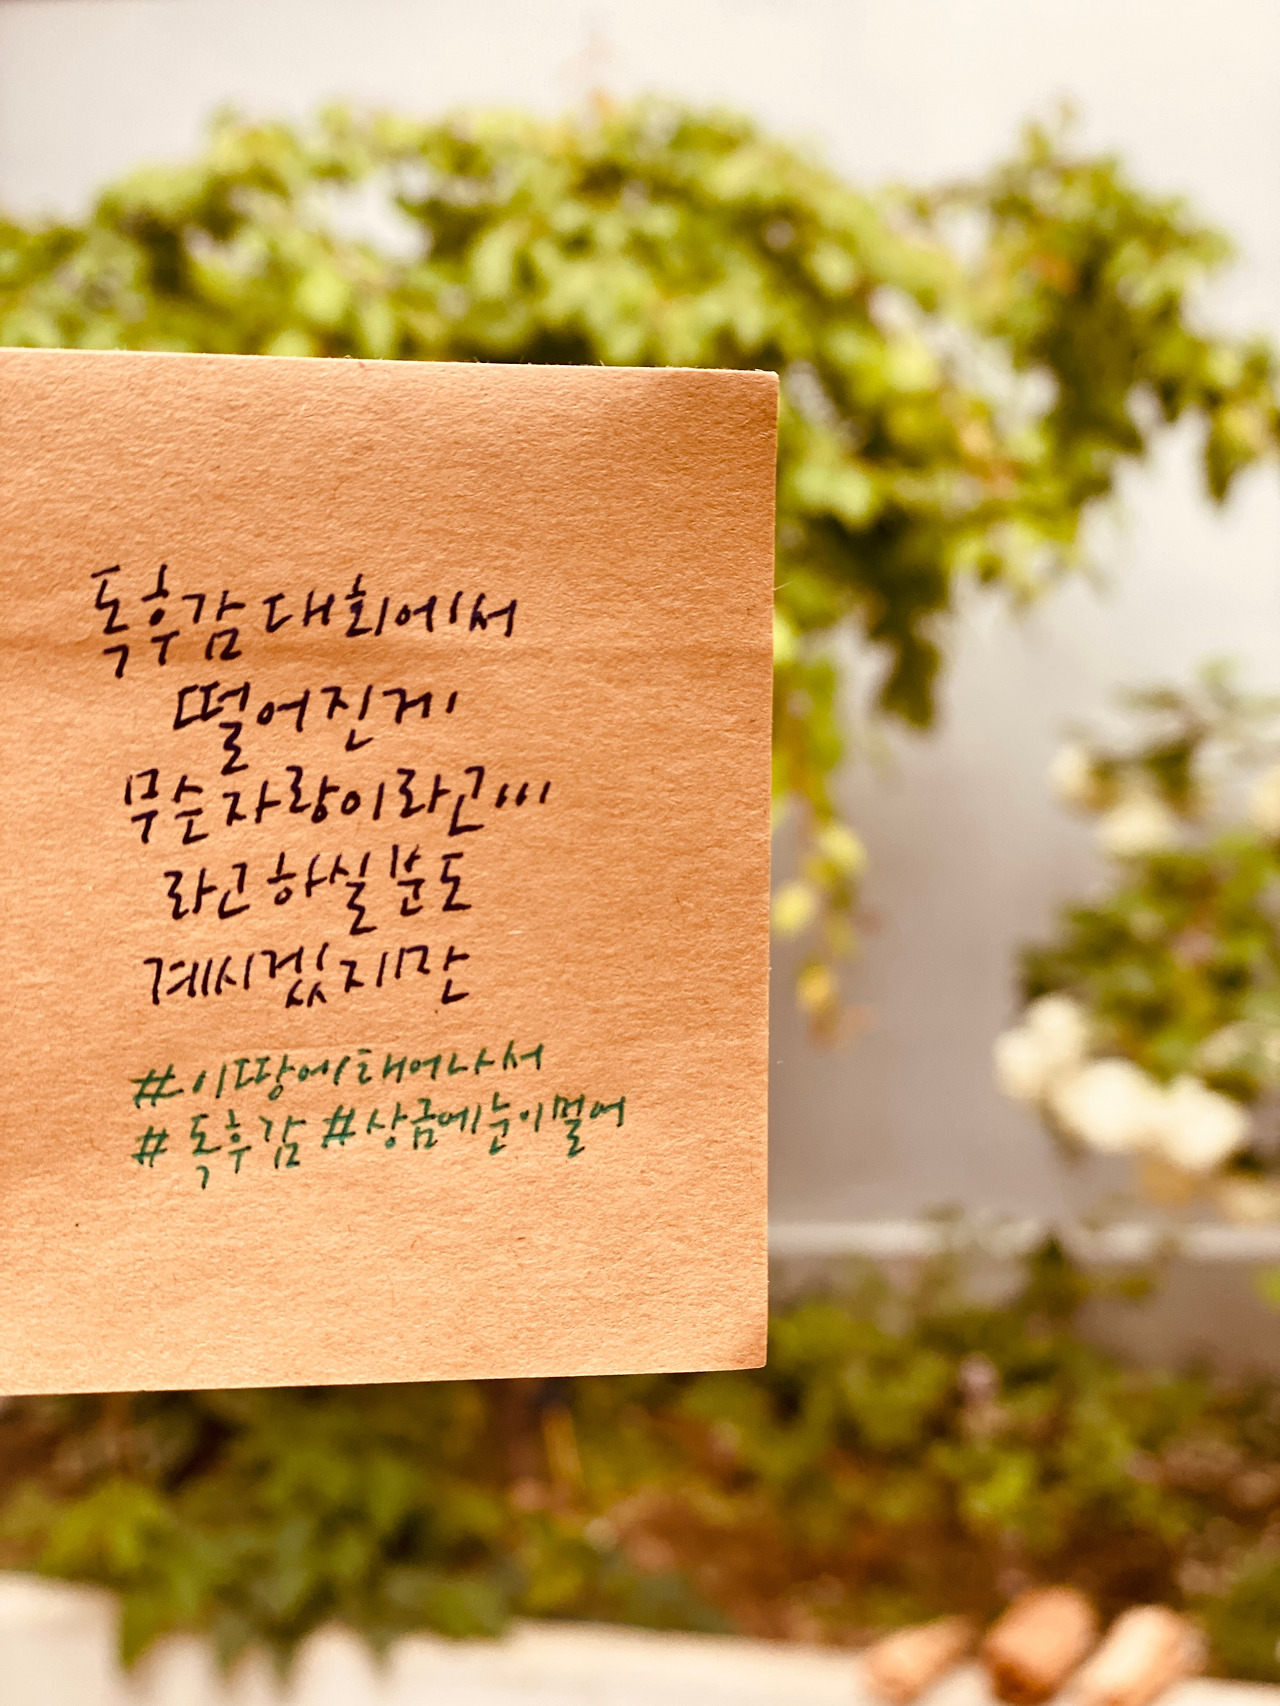 독후감 대회에서
떨어진게
무슨 자랑이라고...
라고 하실 분도
계시겠지만
#이땅에태어나서
#독후감 #상금에눈이멀어